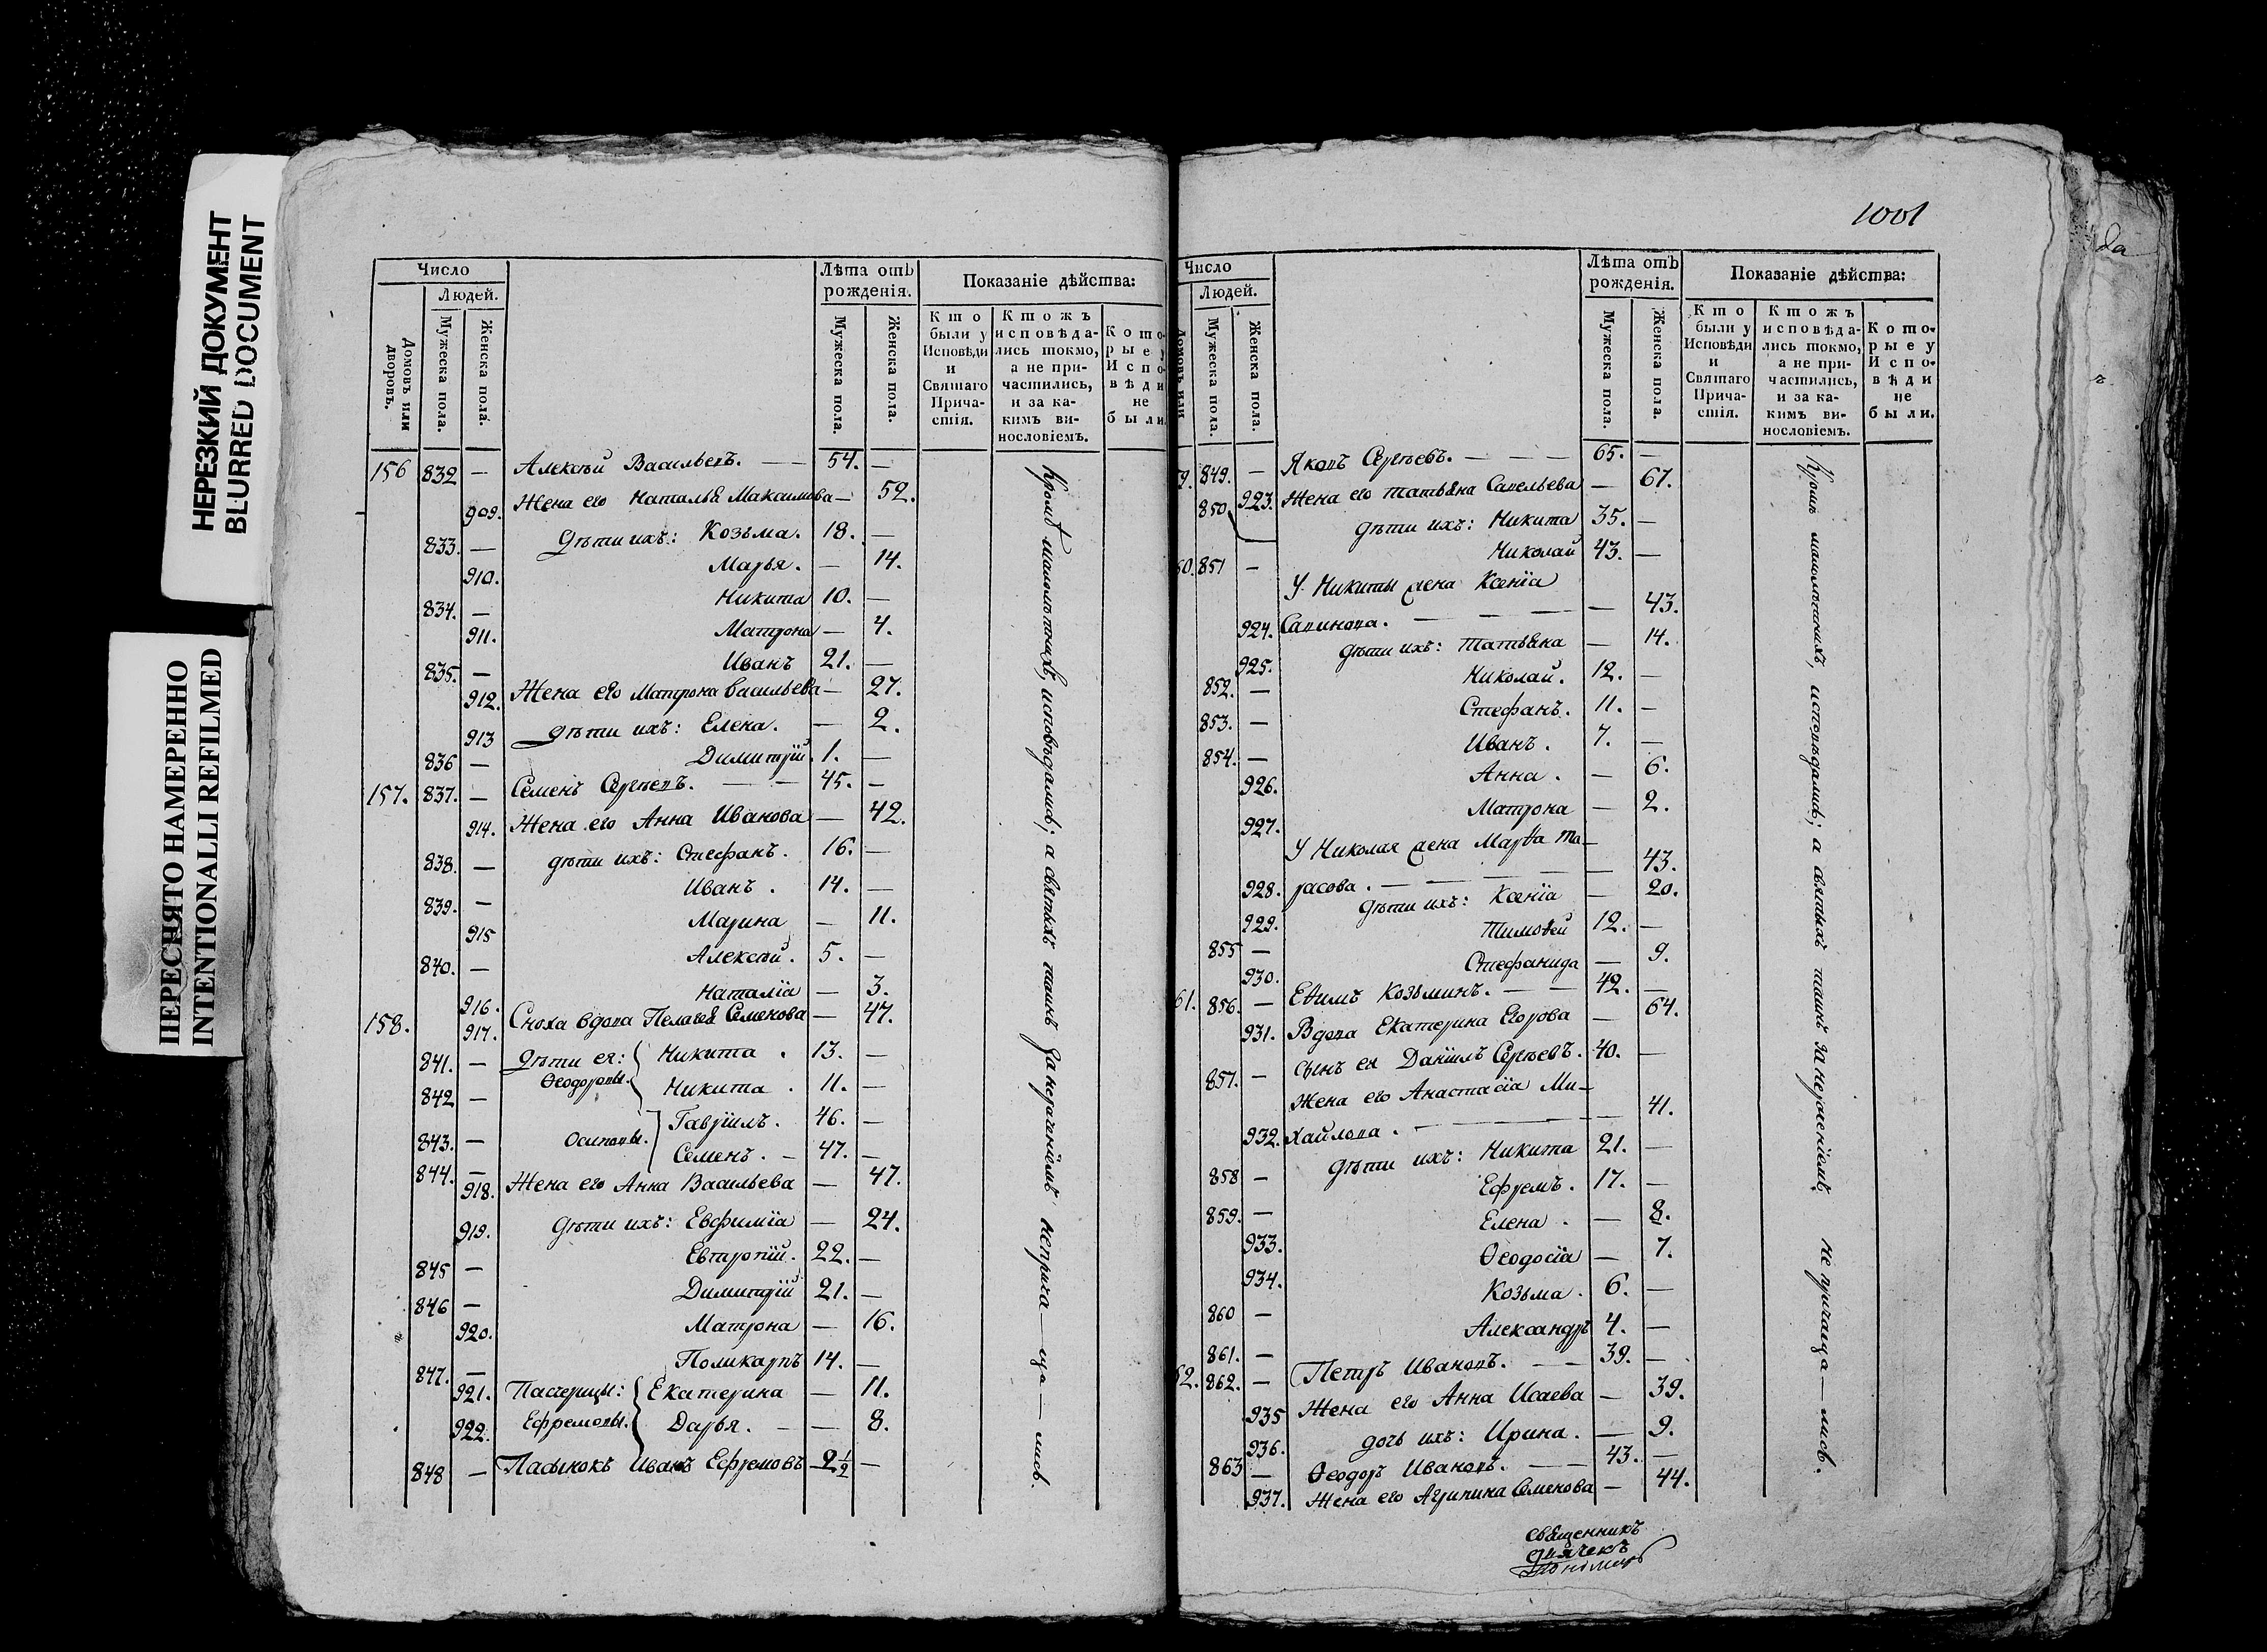 НЕРЕЗКИЙ ДОКУМЕНТ
BLURRED DOCUMENT
ПЕРЕСНЯТО НАМЕРЕННО
INTENTIONALLI REFILMED
Число
Людей.
Домовъ или дворовъ.
Мужеска пола.
Женска пола.
Лѣта отъ рожденія.
Мужеска пола.
Женска пола.
Показаніе дѣйства:
Кто были у Исповѣди и Святаго Причастія.
Ктожъ исповѣдались токмо, а не причастились, и за какимъ винословіемъ.
Которые у Исповѣди не были.
156 832 — Алексѣй Васильевъ. — — 54. —
909. Жена его Наталья Максимова — 52.
833. — Дѣти ихъ: Козьма. 18. —
910. Марья. — 14.
834. — Никита 10. —
911. Матрона — 4.
835. — Иванъ 21. —
912. Жена его Матрона Васильева — 27.
913 Дѣти ихъ: Елена. — 2.
836 — Димитрій. 1. —
157. 837. — Семенъ Сергѣевъ. — — 45. —
914. Жена его Анна Иванова — 42.
838. — Дѣти ихъ: Стефанъ. 16. —
839. — Иванъ. 14. —
915 Марина — 11.
840. — Алексѣй. 5. —
916. Наталіа — 3.
158. 917. Сноха вдова Пелагея Семенова — 47.
841. — Дѣти ея: Никита. 13. —
Ѳеодоровы.
842 — Никита. 11. —
843. — Осиповы. Гавріилъ. 46. —
844. — Семенъ. — 47. —
918. Жена его Анна Васильева — 47.
919. Дѣти ихъ: Евфиміа — 24.
845 — Евтропій. 22. —
846 — Димитрій 21. —
920. Матрона — 16.
847. — Поликарпъ 14. —
921. Пасчерицы: Екатерина — 11.
922. Ефремовы. Дарья. — — 8.
848 — Пасынокъ Иванъ Ефремовъ 2½ —
Кромѣ малолѣтнихъ, исповѣдались; а святыхъ таинъ за нераченіемъ неприча — ща — лись.
1001
Число
Людей.
Домовъ или
Мужеска пола.
Женска пола.
Лѣта отъ рожденія.
Мужеска пола.
Женска пола.
Показаніе дѣйства:
Кто были у Исповѣди и Святаго Причастія.
Ктожъ исповѣдались токмо, а не причастились, и за какимъ винословіемъ.
Которые у Исповѣди не были.
9. 849. — Яковъ Сергѣевъ. — — — 65. —
923. Жена его Татьяна Савельева — 67.
850 Дѣти ихъ: Никита 35. —
60. 851 — Николай 43. —
У Никиты жена Ксеніа
924. Савинова. — — — — 43.
925. Дѣти ихъ: Татьяна — 14.
852. — Николай. 12. —
853. — Стефанъ. 11. —
854. — Иванъ. 7. —
926. Анна. — 6.
927. Матрона — 2.
У Николая жена Марѳа Та—
928. расова. — — — — 43.
929. Дѣти ихъ: Ксеніа — 20.
855 — Тимоѳей 12. —
930. Стефанида — 9.
61. 856. — Еѳимъ Козьминъ. — — 42. —
931. Вдова Екатерина Егорова — 64.
857. — Сынъ ея Даніилъ Сергѣевъ. 40. —
Жена его Анастасіа Ми—
932. хайлова. — — 41.
858 — Дѣти ихъ: Никита 21. —
859. — Ефремъ. 17. —
933. Елена. — 8.
934. Ѳеодосіа — 7.
860 — Козьма. 6. —
861. — Александръ 4. —
62. 862. — Петръ Ивановъ. — — 39. —
935 Жена его Анна Исаева — 39.
936. дочь ихъ: Ирина. — 9.
863 — Ѳеодоръ Ивановъ. — — 43. —
937. Жена его Агрипина Семенова — 44.
Кромѣ малолѣтнихъ, исповѣдались; а святыхъ таинъ за нераченіемъ не прича ща — лись.
Священникъ
Дьячекъ
Пономарь